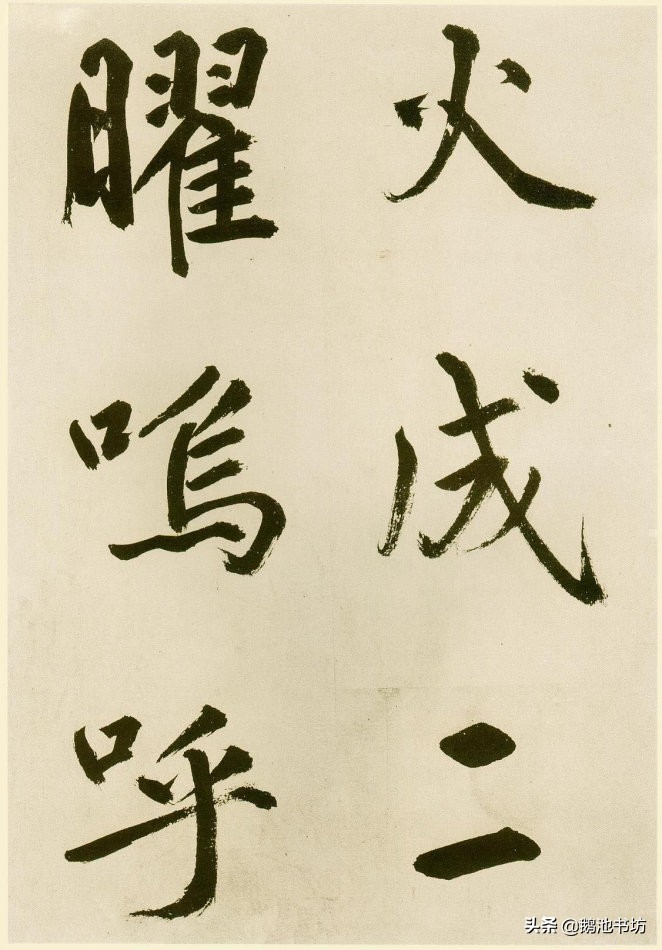 火成二
曜嗚呼
头条 @鹅池书坊